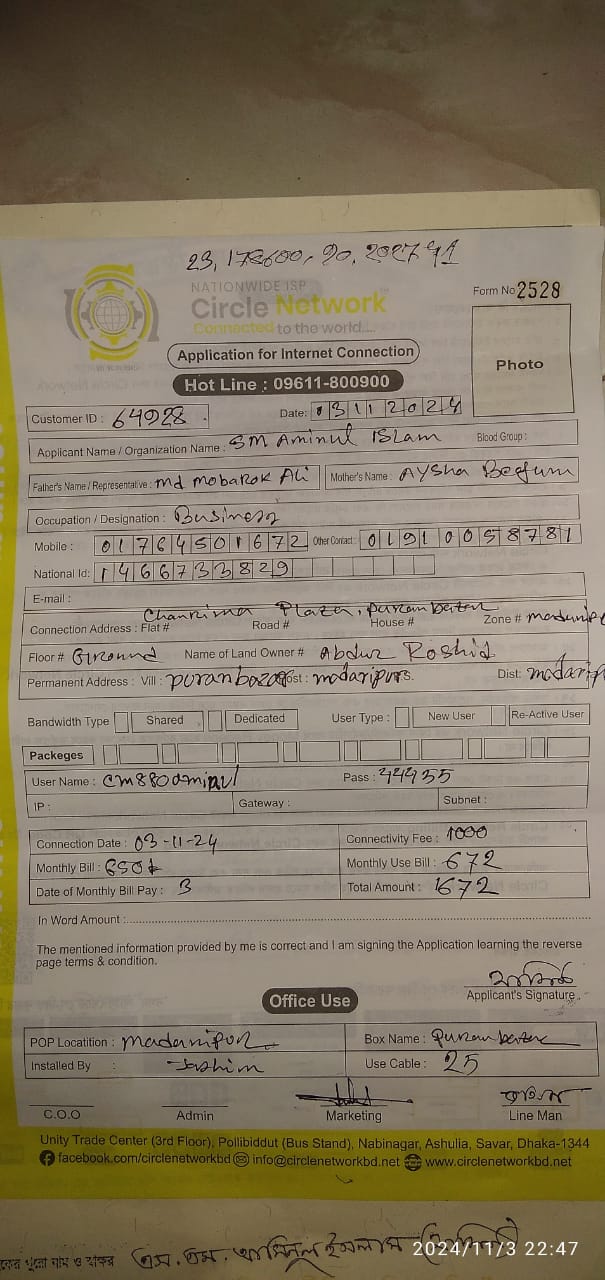 NATIONWIDE ISP
Circle Network
Connected to the world....
Form No 2528
Application for Internet Connection
Photo
Hot Line : 09611-800900
Customer ID : 64928
Date: 03112024
Applicant Name / Organization Name : SM Aminul ISLam Blood Group :
Father's Name / Representative : md mobarok Ali Mother's Name : AYSha Begum
Occupation / Designation : Business
Mobile : 01764501672 Other Contact : 01910058781
National Id: 1466733829
E-mail :
Connection Address : Flat # Plaza, Road # House # Zone #
Floor # Ground Name of Land Owner # Abdur Roshid
Permanent Address : Vill : puranbazar Dist:
Bandwidth Type Shared Dedicated User Type : New User Re-Active User
Packeges
User Name : Pass : 44455
IP : Gateway : Subnet :
Connection Date : 03-11-24 Connectivity Fee : 1000
Monthly Bill : 650 Monthly Use Bill : 672
Date of Monthly Bill Pay : 3 Total Amount : 1672
In Word Amount :
The mentioned information provided by me is correct and I am signing the Application learning the reverse
page terms & condition.
Applicant's Signature
Office Use
POP Locatition : Box Name :
Installed By : Jashim Use Cable : 25
C.O.O Admin Marketing Line Man
Unity Trade Center (3rd Floor), Pollibiddut (Bus Stand), Nabinagar, Ashulia, Savar, Dhaka-1344
facebook.com/circlenetworkbd info@circlenetworkbd.net www.circlenetworkbd.net
এস. এম. আমিনুল ইসলাম
2024/11/3 22:47